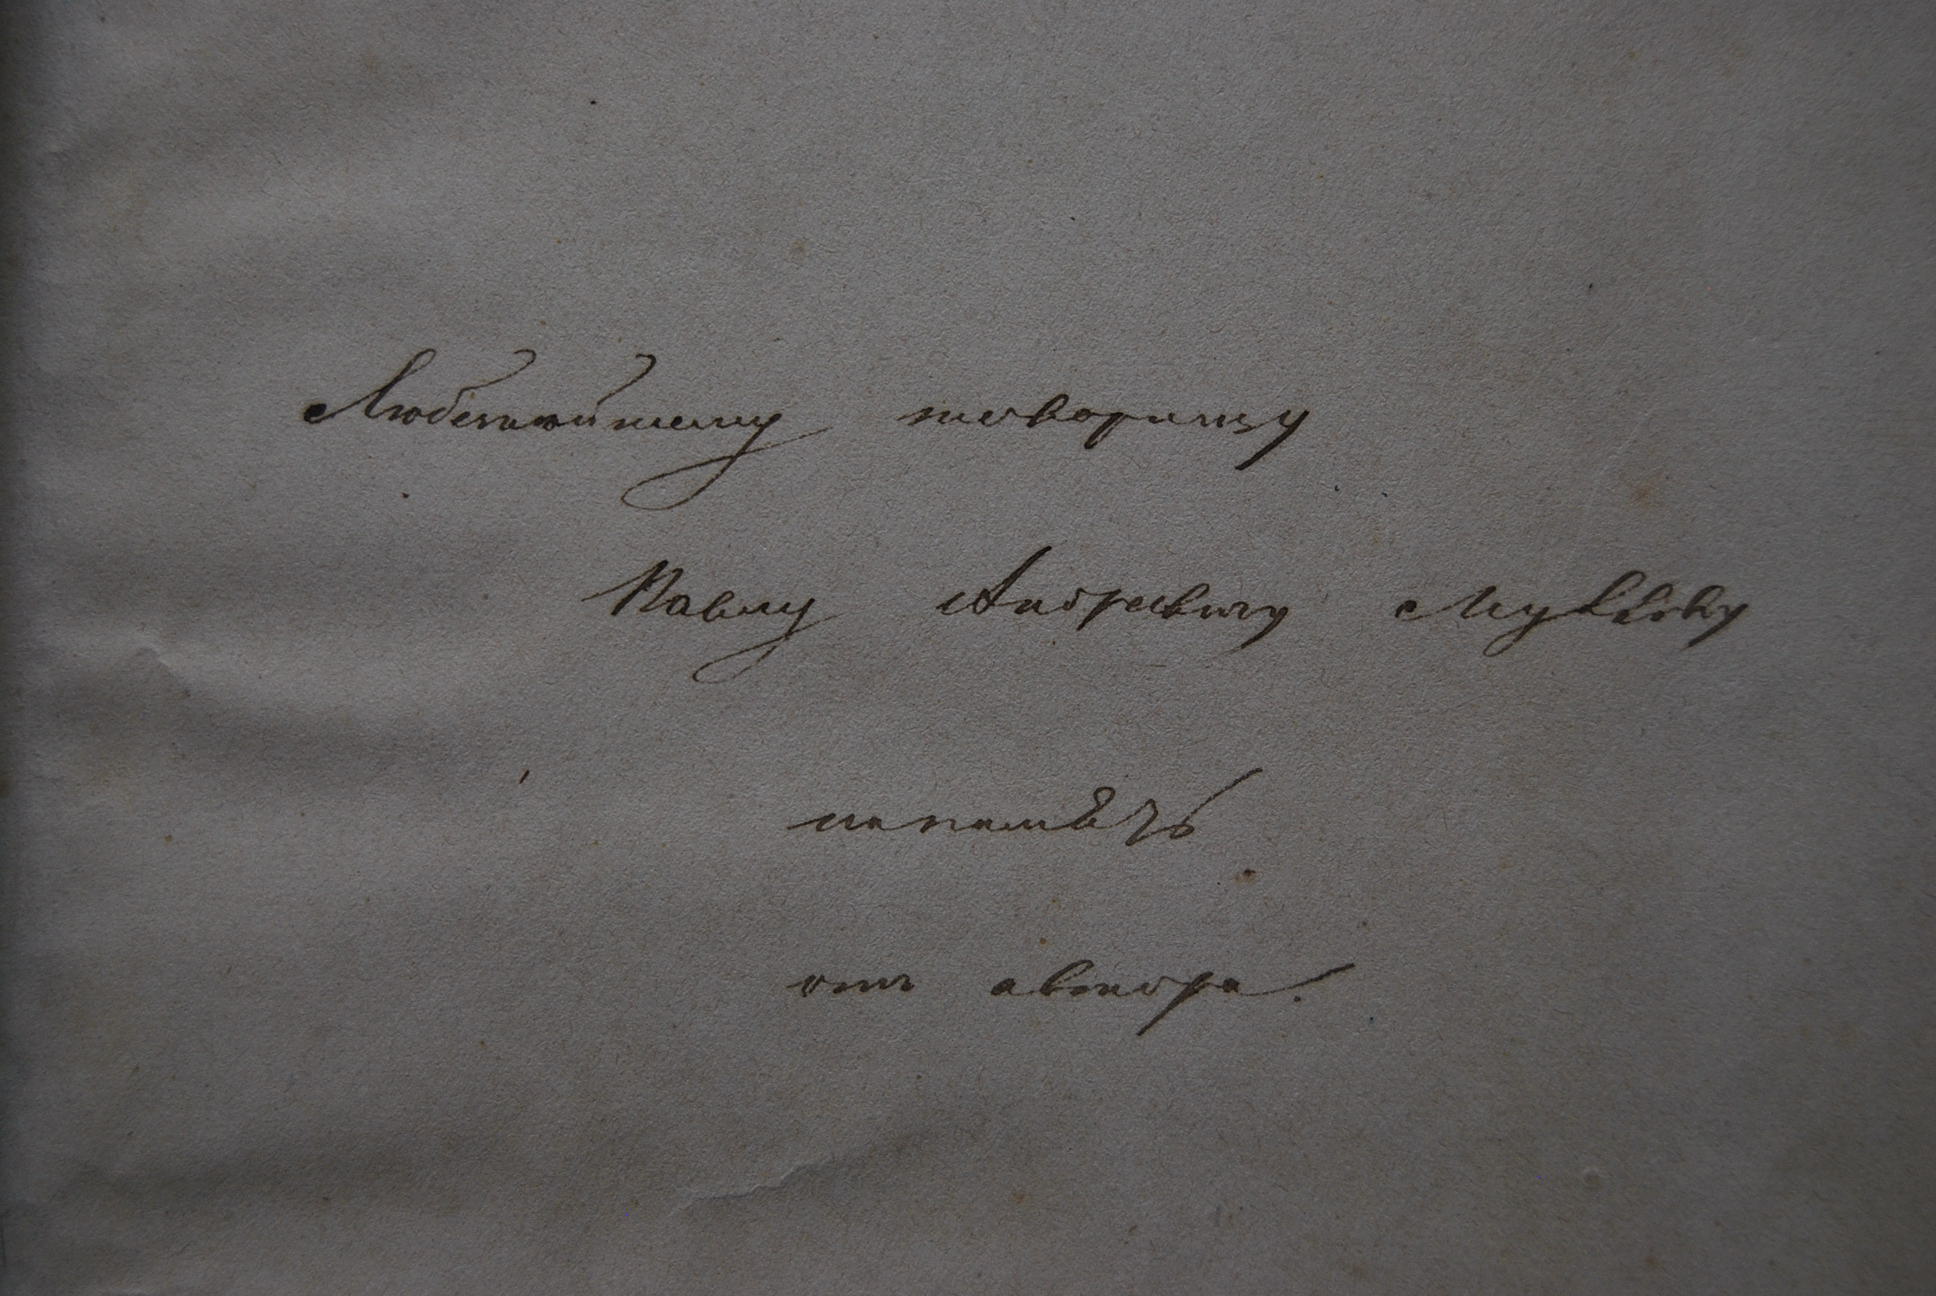 Любезнѣйшему товарищу
Павлу Андреевичу
на память
отъ автора.